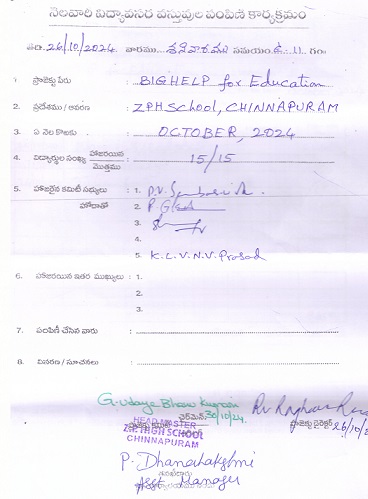 నెలవారి విద్యావసర వస్తువుల పంపిణీ కార్యక్రమం
తేది. 26/10/2024. వారము... శనివారము సమయం.ఉ. 11. గం॥
1. ప్రాజెక్టు పేరు : BIGHELP for Education
2. ప్రదేశము / ఆవరణ : Z.P.H School, CHINNAPURAM
3. ఏ నెల కొఱకు : OCTOBER, 2024
4. విద్యార్థుల సంఖ్య హాజరయిన / మొత్తము : 15/15
5. హాజరైన కమిటీ సభ్యులు : 1.
హోదాతో 2.
3.
4.
5. K.L.V.N.V. Prasad
6. హాజరయిన ఇతర ముఖ్యులు : 1.
2.
3.
7. పంపిణీ చేసిన వారు :
8. వివరణ / సూచనలు :
G. Udaya Bhanu Kumari
ఛైర్మెన్ 30/10/24.
ప్రాజెక్టు డైరెక్టర్ 26/10/2
HEAD MASTER
Z.P. HIGH SCHOOL
CHINNAPURAM
P. Dhanalakshmi
Asst Manager